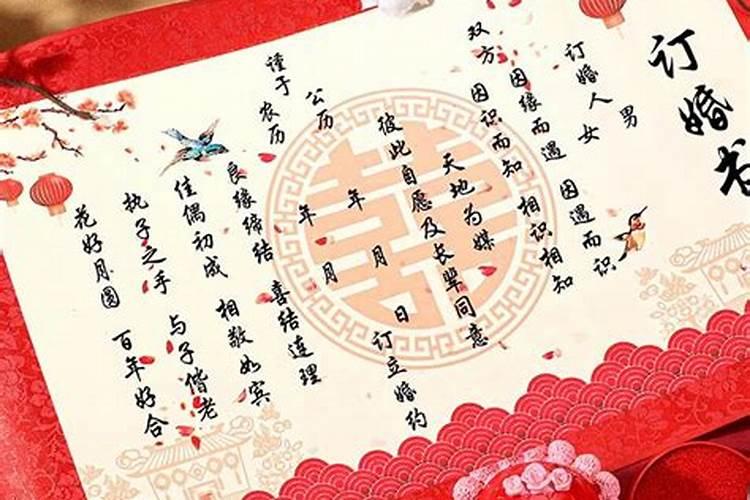 订婚书
男
订婚人 女
双方 因缘而遇 因遇而识
因识而知 相识相知
天地为媒
彼此自愿及长辈同意
公历 年 月 日 订立婚约
谨于 农历 年 月
良缘缔结 喜结连理
佳偶初成 相敬如宾
执子之手 与子偕老
花好月圆 百年好合